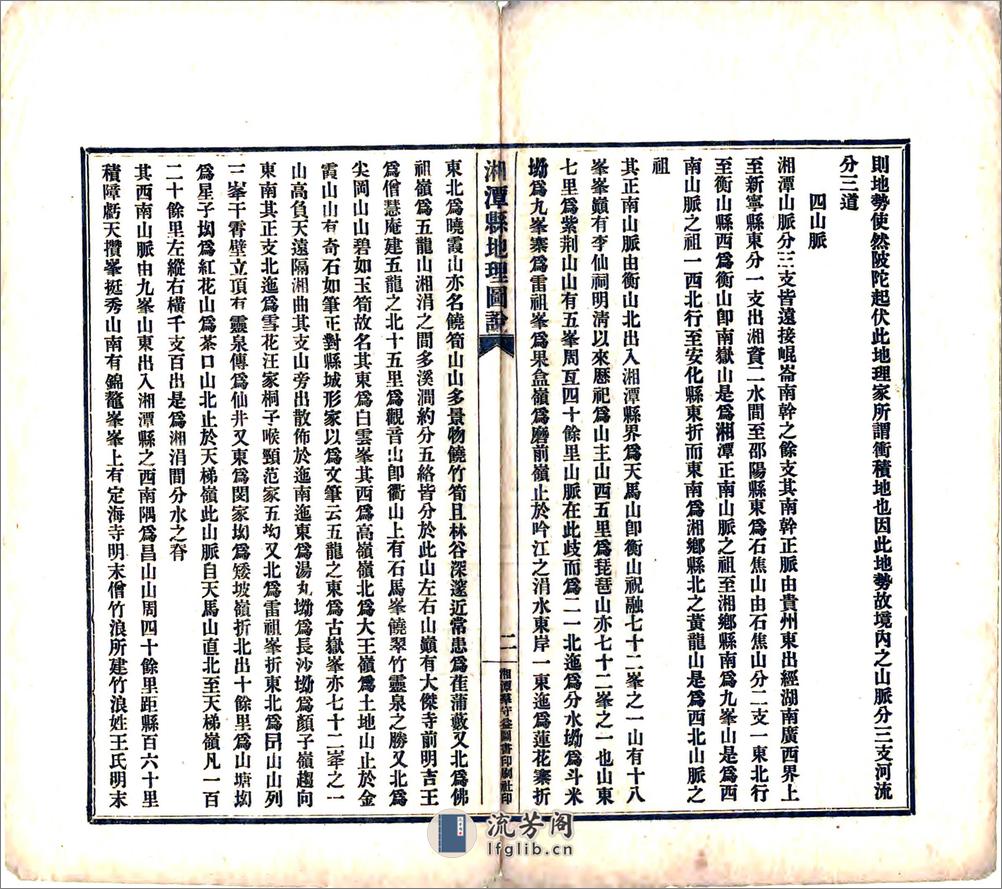 則地勢使然陂陀起伏此地理家所謂衝積地也因此地勢故境內之山脈分三支河流
分三道
四山脈
湘潭山脈分三支皆遠接崐崙南幹之餘支其南幹正脈由貴州東出經湖南廣西界上
至新寧縣東分一支出湘資二水間至邵陽縣東爲石焦山由石焦山分二支一東北行
至衡山縣西爲衡山卽南嶽山是爲湘潭正南山脈之祖至湘鄉縣南爲九峯山是爲西
南山脈之祖一西北行至安化縣東折而東南爲湘鄉縣北之黃龍山是爲西北山脈之
祖
其正南山脈由衡山北出入湘潭縣界爲天馬山卽衡山祝融七十二峯之一山有十八
峯峯巔有李仙祠明淸以來歷祀爲山主山西五里爲琵琶山亦七十二峯之一也山東
七里爲紫荆山山有五峯周亙四十餘里山脈在此歧而爲二一北迤爲分水坳爲斗米
坳爲九峯寨爲雷祖峯爲果盒嶺爲磨前嶺止於吟江之涓水東岸一東迤爲蓮花寨折
湘潭縣地理圖說
二
湘潭羣守益圖書印刷社印
東北爲曉霞山亦名饒筍山山多景物饒竹筍且林谷深邃近常患爲萑蒲藪又北爲佛
祖嶺爲五龍山湘涓之間多溪澗約分五絡皆分於此山左右山巔有大傑寺前明吉王
爲僧慧庵建五龍之北十五里爲觀音山卽衢山上有石馬峯饒翠竹靈泉之勝又北爲
尖岡山山碧如玉筍故名其東爲白雲峯其西爲高嶺嶺北爲大王嶺爲土地山止於金
霞山山有奇石如筆正對縣城形家以爲文筆云五龍之東爲古嶽峯亦七十二峯之一
山高負天遠隔湘曲其支山旁出散佈於迤南迤東爲湯丸坳爲長沙坳爲顏子嶺趨向
東南其正支北迤爲雪花汪家桐子喉頸范家五坳又北爲雷祖峯折東北爲昌山山列
三峯干霄壁立頂有靈泉傳爲仙井又東爲閔家坳爲矮坡嶺折北出十餘里爲山塘坳
爲星子坳爲紅花山爲茶口山北止於天梯嶺此山脈自天馬山直北至天梯嶺凡一百
二十餘里左縱右橫千支百出是爲湘涓間分水之脊
其西南山脈由九峯山東出入湘潭縣之西南隅爲昌山山周四十餘里距縣百六十里
積障虧天攢峯挺秀山南有錦鼇峯峯上有定海寺明末僧竹浪所建竹浪姓王氏明末
流芳阁
lfglib.cn